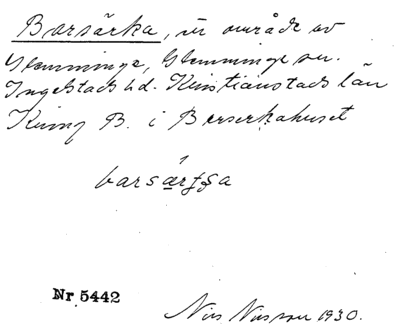 Barsärka, ur område av
Glemminge, Glemminge sn.
Ingelstads hd. Kristianstads län
Kring B. i Berserkahuset
barsärʈʂa
Nr 5442
Nils Nilsson 1930.